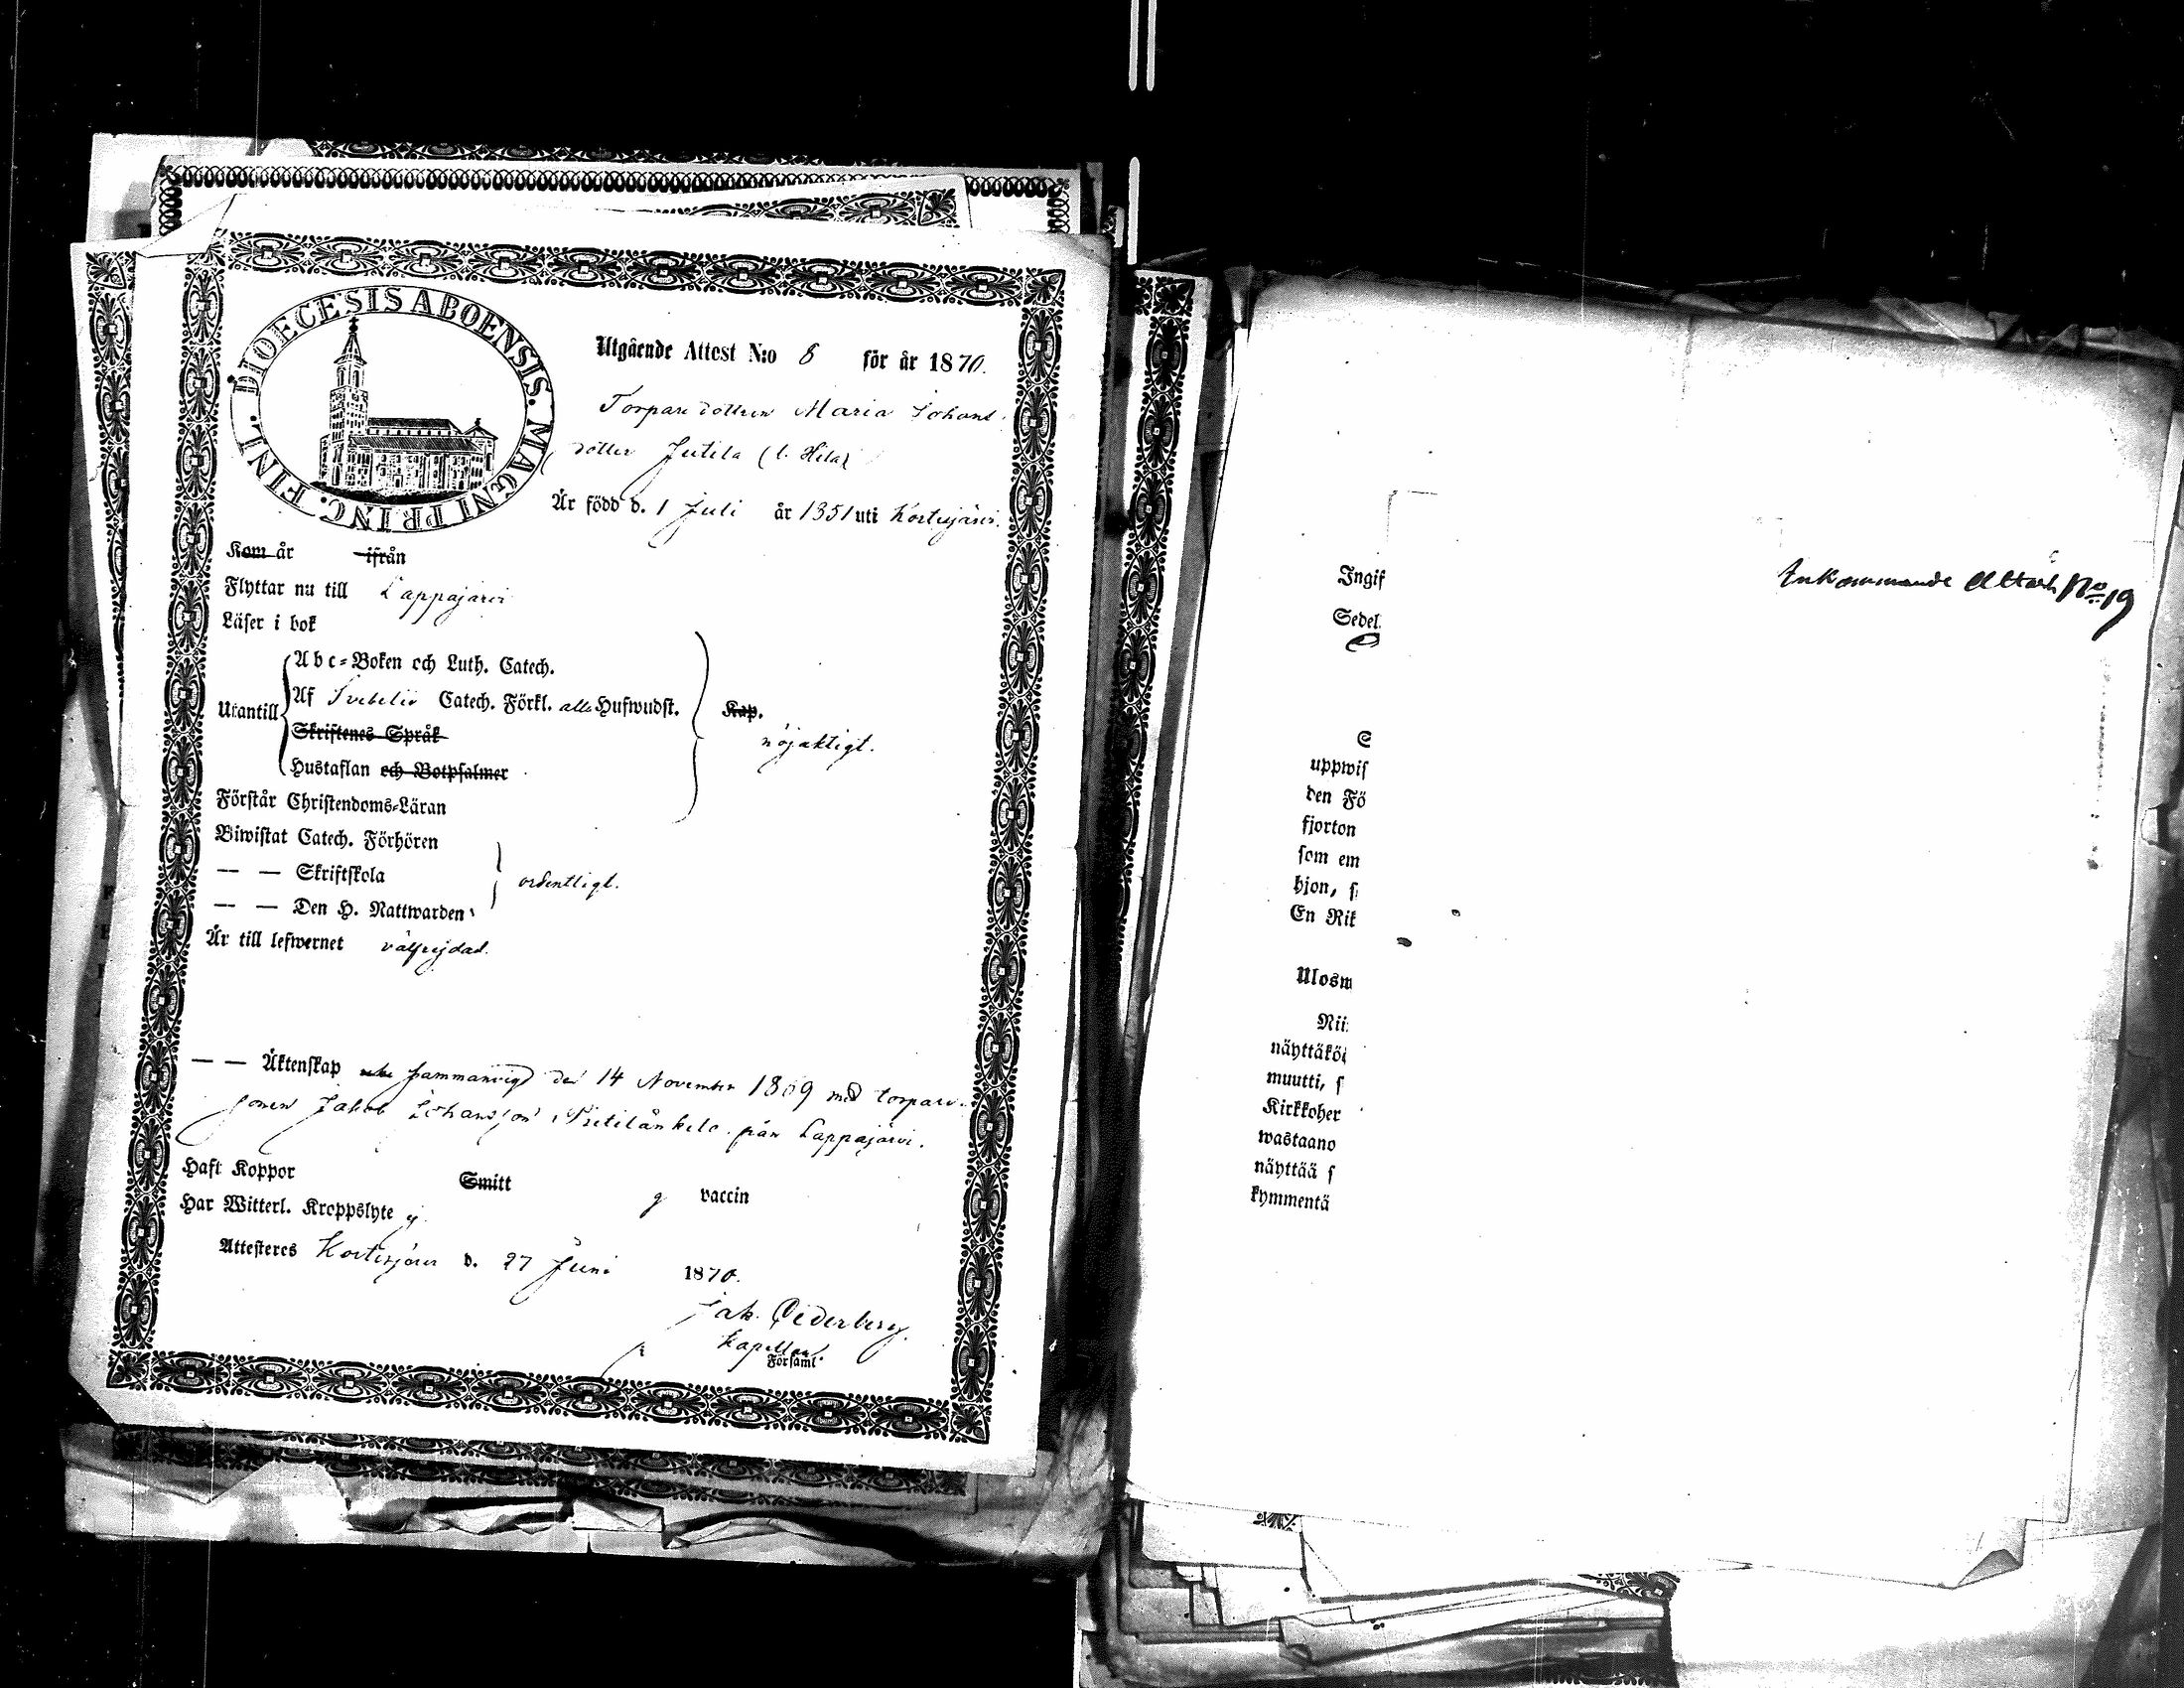 DIOECESIS ABOENSIS. MAGNI PRINC. FINL.
Utgående Attest N:o 8 för år 1870.
Torparedottren Maria Johans
dotter Jutila (l. Hilal
Är född d. 1 Juli år 1851 uti Kortesjärvi.
Kom år ifrån
Flyttar nu till Lappajärvi
Läser i bok
Abc-Boken och Luth. Catech.
Utantill Af Svebelii Catech. Förkl. alla Hufwudst. Kap.
Skriftenes Språk
nöjaktigt.
Hustaflan och Botpsalmer
Förstår Christendoms-Läran
Biwistat Catech. Förhören
— — Skriftskola
ordentligt.
— — Den H. Nattwarden
Är till lefwernet välfrejdad.
— — Äktenskap sammanvigd den 14 November 1869 med torpare-
sonen Jakob Johansson från Lappajärvi.
Haft Koppor Smitt vaccin
Har Witterl. Kroppslyte ej
Attesteres Kortesjärvi d. 27 Juni 1870.
Jak. Cederberg.
Kapellan.
Församl.
Inkommande Attest No 19
Ingif
Sedel
uppwis
den Fö
fjorton
som em
hjon, s
En Rik
Ulosw
Nii
näyttäkö
muutti, s
Kirkkoher
wastaano
näyttää s
kymmentä